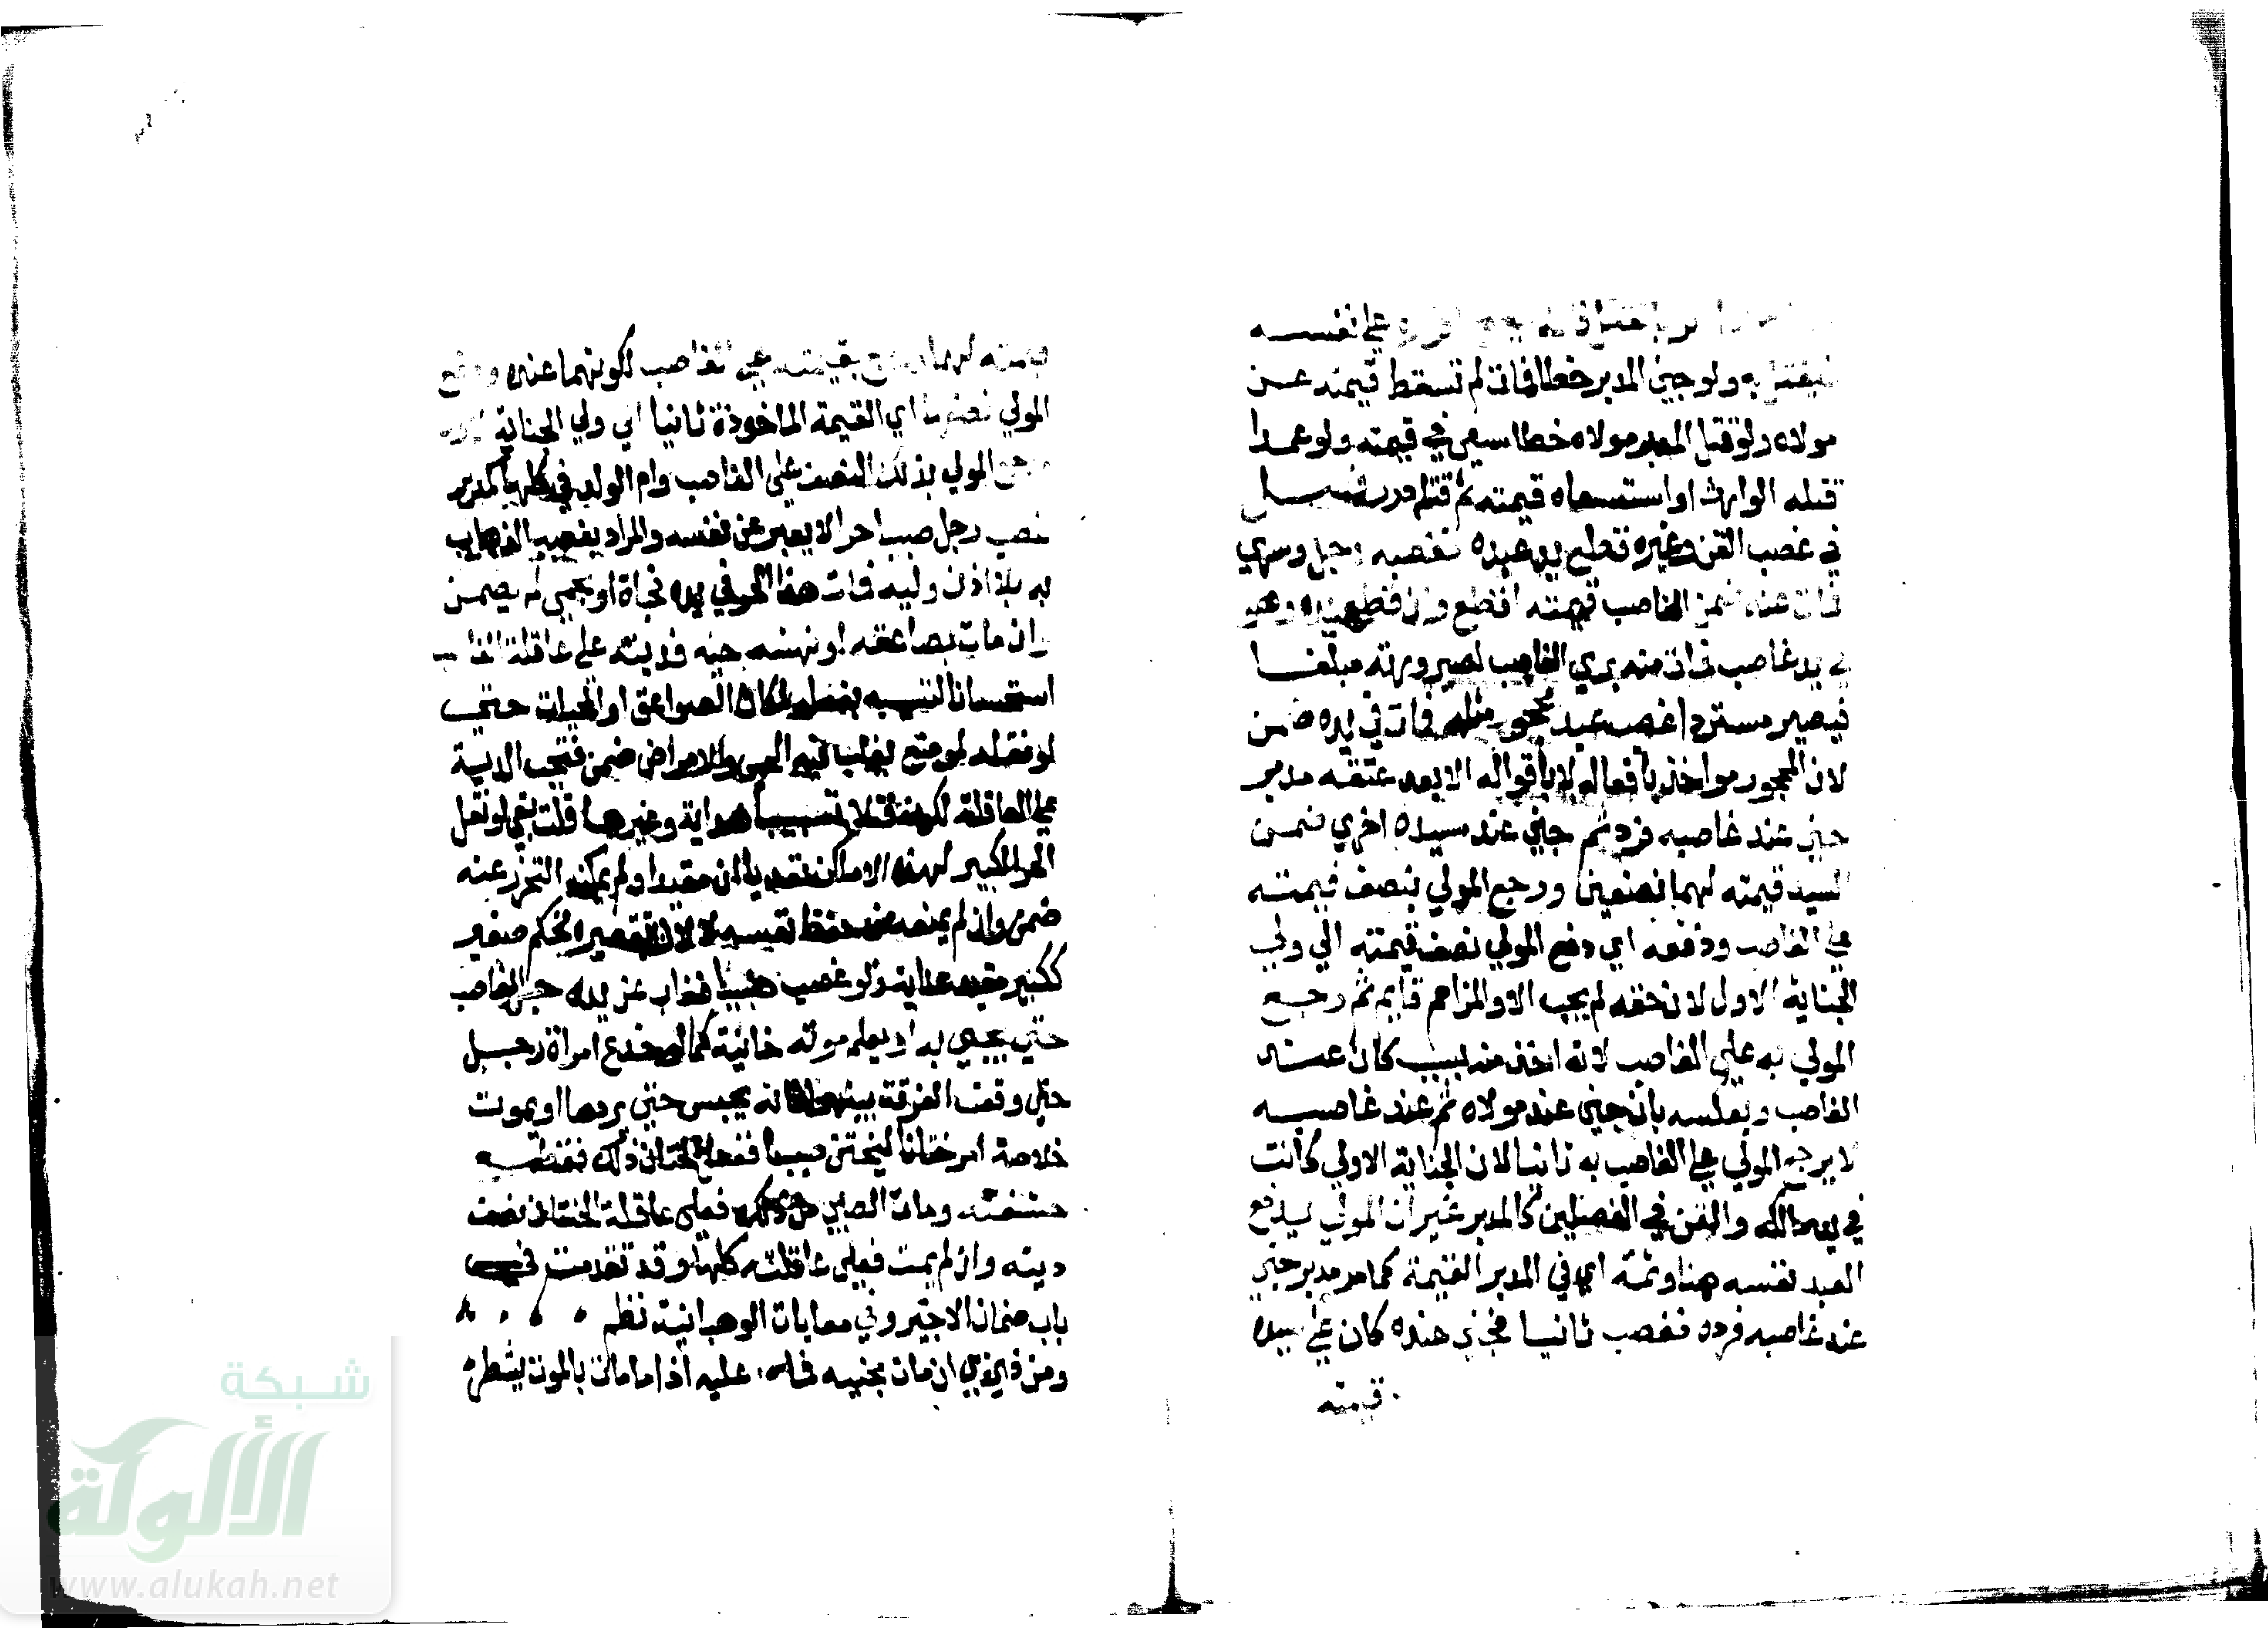 علي نفسه
فيقتل به ولو جني المدبر خطا فمات لم تسقط قيمته عن
مولاه ولو قتل المدبر مولاه خطا سعي في قيمته ولو عمدا
قتله الوارث او استسعاه قيمته ثم قتله درر فصل
في غصب القن وغيره قطع يد عبده فغصبه رجل وسري
فمات عنده ضمن الغاصب قيمته اقطع وان قطع يده وهو
في يد غاصب فمات منه بري الغاصب لصيرورته متلفا
فيصير مستردا غصب عبد محجور مثله فمات في يده ضمن
لان المحجور مواخذ بافعاله لا باقواله الا بعد عتقه مدبر
جني عند غاصبه فرد ثم جني عند سيده اخري ضمن
السيد قيمته لهما نصفين ورجع المولي بنصف قيمته
علي الغاصب ودفعه اي دفع المولي نصف قيمته الي ولي
الجناية الاول لان حقه لم يجب الا والمزاحم قايم ثم رجع
المولي به علي الغاصب لانه اخذ منه بسبب كان عند
الغاصب وبعكسه بان جني عند مولاه ثم عند غاصبه
لا يرجع المولي علي الغاصب به ثانيا لان الجناية الاولي كانت
في يد مالكه والقن في الفصلين كالمدبر غير ان المولي يدفع
العبد نفسه هنا وثمة اي في المدبر القيمة كما مر مدبر جني
عند غاصبه فرده فغصب ثانيا فجني عنده كان علي سيده
قيمته
قيمته لهما ورجع بقيمته علي الغاصب لكونهما عنده ودفع
المولي نصفها اي القيمة الماخوذة ثانيا الي ولي الجناية
ورجع المولي بذلك النصف علي الغاصب وام الولد في كلها كمدبر
غصب رجل صبيا حرا لا يعبر عن نفسه والمراد بغصبه الذهاب
به بلا اذن وليه فمات هذا الحر في يده فجاة او بحمي لم يضمن
وان مات بصاعقه او نهشه حية فديته علي عاقلة الغاصب
استحسانا لتسببه بنقله لمكان الصواعق او الحيات حتي
لو نقله لموضع يغلب فيه الحمي والامراض ضمن فتجب الدية
علي العاقلة لكونه قتلا تسبيبا هداية وغيرها قلت بقي لو نقل
الحر الكبير لهذه الاماكن تعديا ان مقيدا ولم يمكنه التحرز عنه
ضمن وان لم يمنعه من حفظ نفسه لا لان التقصير فحكم صغير
ككبير مقيد عناية ولو غصب صبيا فغاب عن يده حبس الغاصب
حتي يجيي به او يعلم موته خانية كما لو خدع امراة رجل
حتي وقعت الفرقة بينهما فانه يحبس حتي يردها او يموت
خلاصة امر ختانا ليختن صبيا ففعل الختان ذلك فقطع
حشفته ومات الصبي من ذلك فعلي عاقلة الختان نصف
ديته وان لم يمت فعلي عاقلته كلها وقد تقدمت في
باب ضمان الاجير وفي معاياة الوهبانية نظم
ومن ذا الذي ان مات مجنيه فما عليه اذا مامات بالموت يشطر